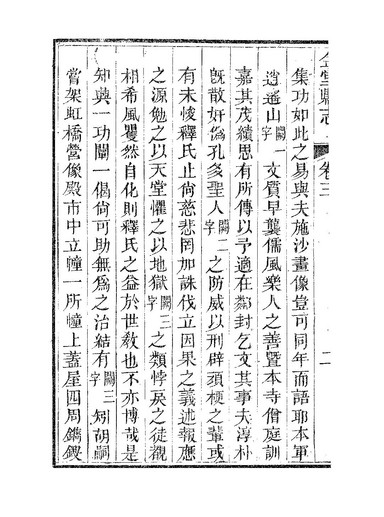 金堂縣志 卷三 二
集功如此之易與夫施沙畫像豈可同年而語耶本軍
逍遙山闕一字文質早襲儒風樂人之善暨本寺僧庭訓
嘉其茂績思有所傳以予適在鄰封乞文其事夫淳朴
旣散奸僞孔多聖人闕二字之防威以刑辟頑梗之輩或
有未悛釋氏止尙慈悲罔加誅伐立因果之義述報應
之源勉之以天堂懼之以地獄闕三字之類悖戾之徒覩
相希風矍然自化則釋氏之益於世敎也不亦博哉是
知與一功闡一偈尙可助無爲之治結有闕三字矧胡嗣
嘗架虹橋營像殿市中立幢一所幢上蓋屋四周鐫鍐